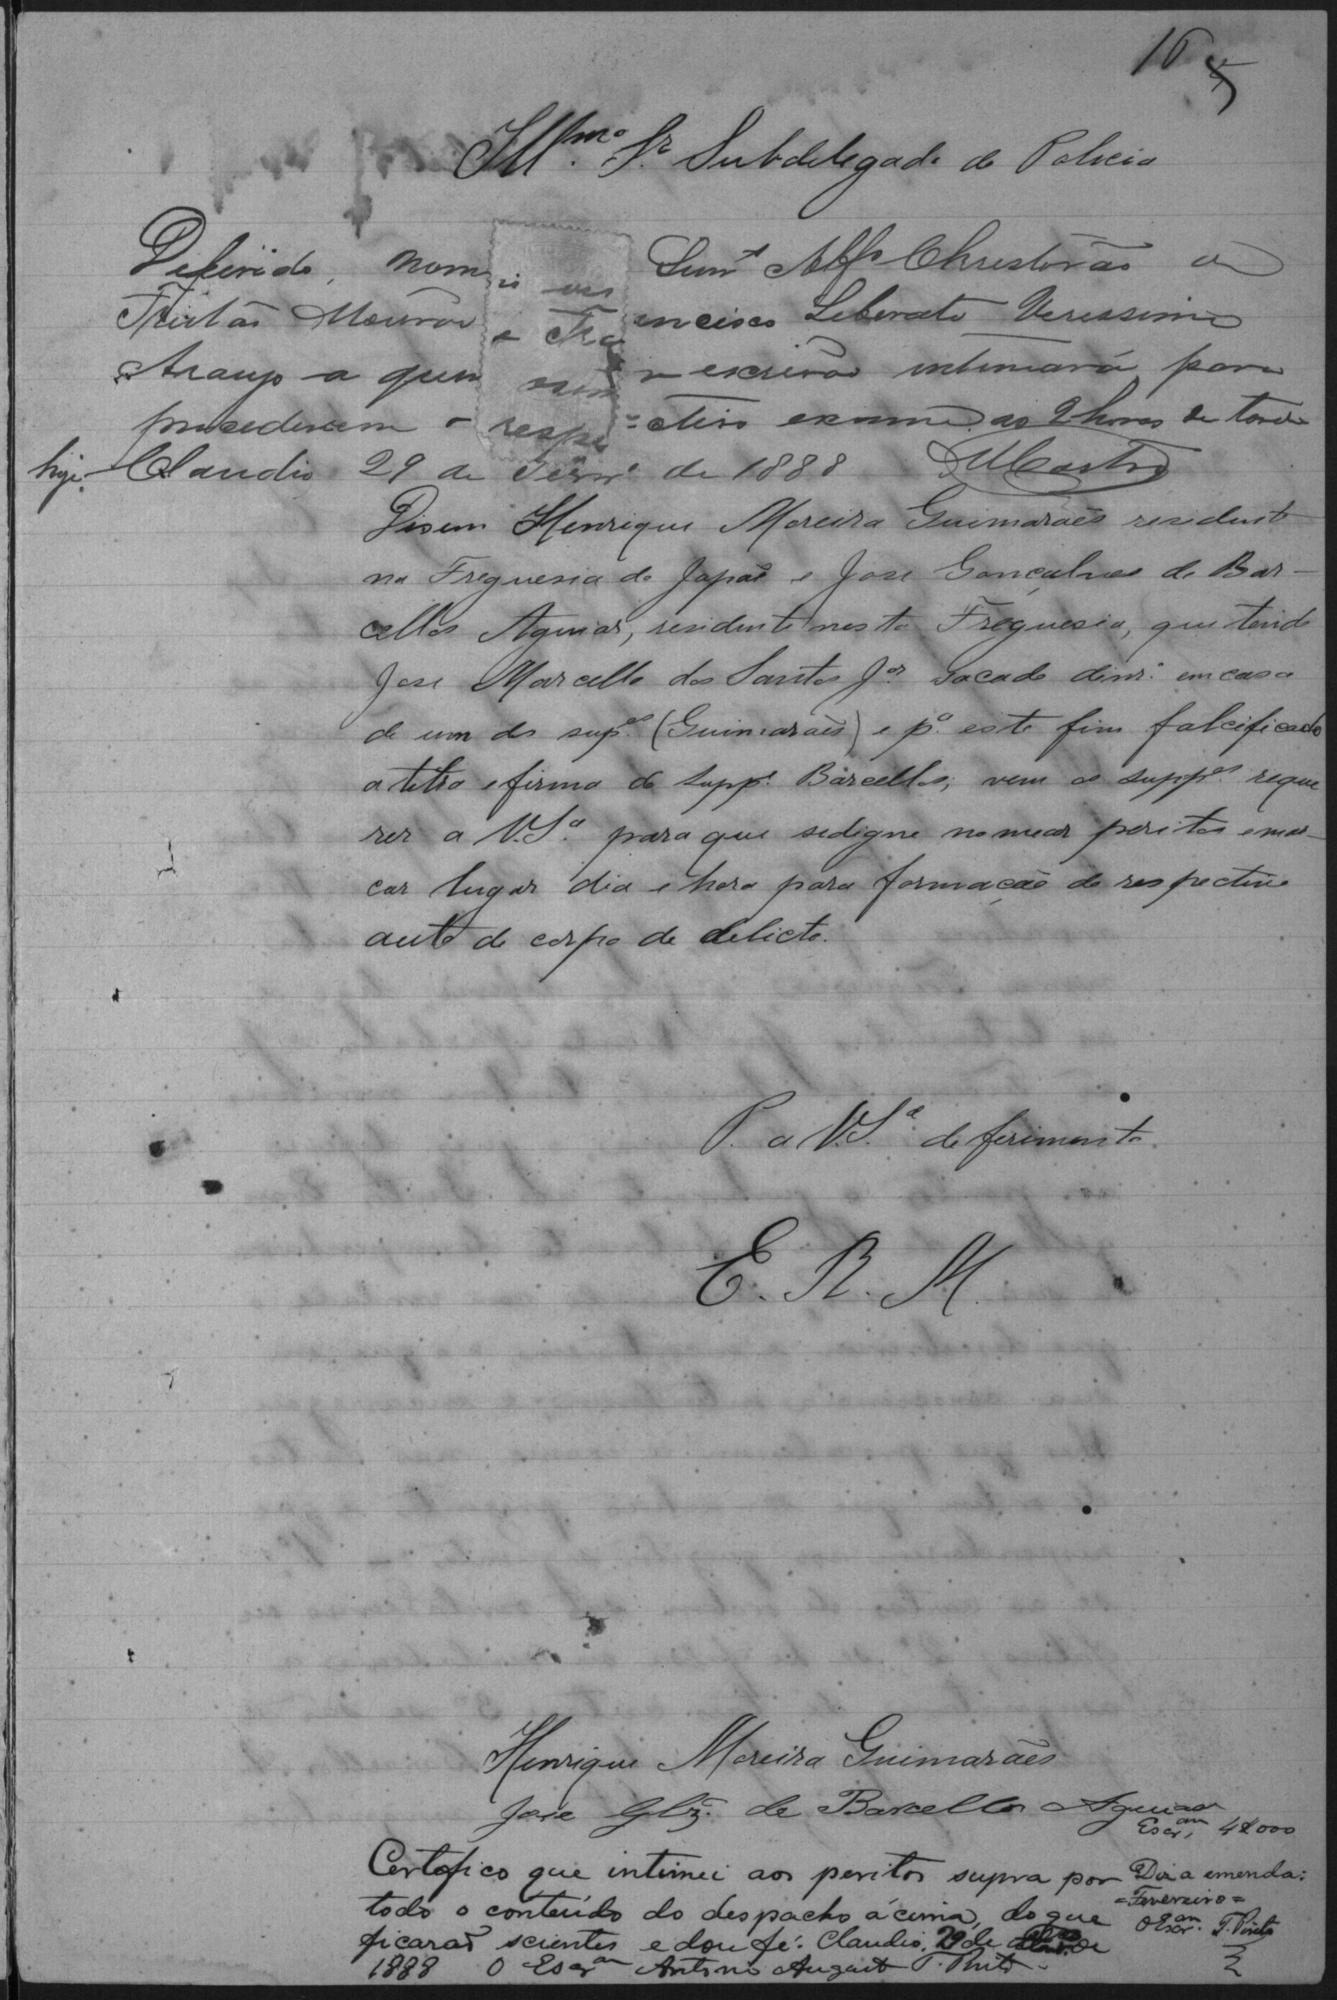 16
5
Ill.mo Sr. Subdelegado de Policia
Deferido, nomeio os Srs. Alfs Christovão de
Freitas Mourão e Francisco Leberato Verissimo
Araujo a quem o escrivão intimará para
procederem o respe=ctivo exame, as 2 horas da tarde
hoje. Claudio 29 de Fevro de 1888 MCastro
Disem Henrique Moreira Guimarães residente
na Freguesia do Japão e Jose Gonçalves de Bar-
cellos Aguiar, residente nesta Freguesia, que tendo
Jose Marcello dos Santos Jor sacado dinro em casa
de um dos supes (Guimarães) e pa este fim falcificado
a letra e firma do suppe Barcellos, vem os suppes reque
rer a V.Sa para que se digne nomear peritos e mar-
car lugar dia e hora para formação do respectivo
auto de corpo de delicto.
P. a V.Sa deferimento.
E. R. M.
Henrique Moreira Guimarães
Jose Glz de Barcellos Aguiar
Escram 4$000
Certefico que intimei aos peritos supra por
todo o conteúdo do despacho ácima, do que
ficarão scientes e dou fé. Claudio, 29 de
1888 O Escram Antonio Augusto P. Pinto
Diz a emenda:
=Fevereiro=
O Escram. P. Pinto